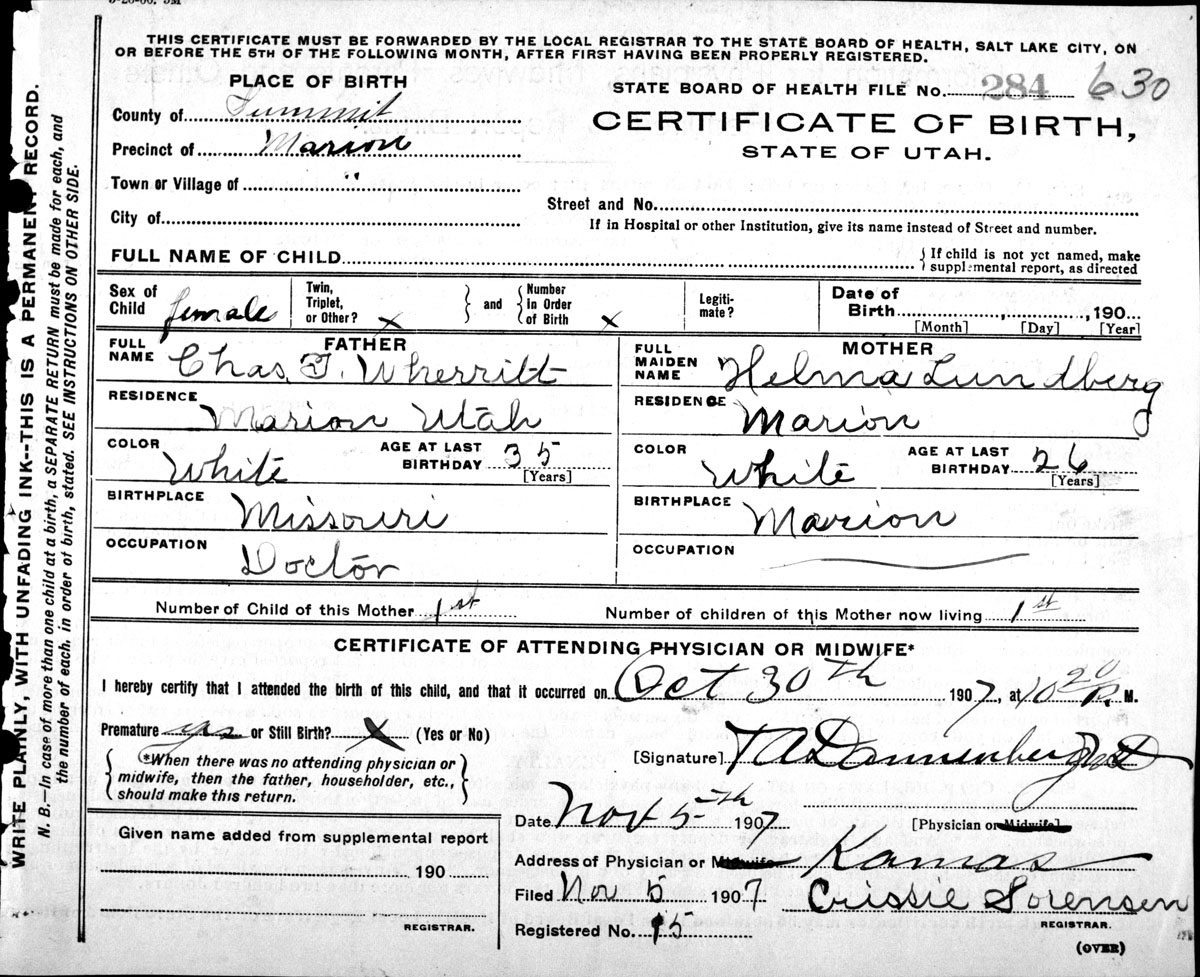 THIS CERTIFICATE MUST BE FORWARDED BY THE LOCAL REGISTRAR TO THE STATE BOARD OF HEALTH, SALT LAKE CITY, ON
OR BEFORE THE 5TH OF THE FOLLOWING MONTH, AFTER FIRST HAVING BEEN PROPERLY REGISTERED.
PLACE OF BIRTH
STATE BOARD OF HEALTH FILE No. 284 630
County of Summit
CERTIFICATE OF BIRTH,
Precinct of Marion
STATE OF UTAH.
Town or Village of "
Street and No.
City of
If in Hospital or other Institution, give its name instead of Street and number.
FULL NAME OF CHILD
{ If child is not yet named, make
supplemental report, as directed
Sex of Child female
Twin, Triplet, or Other? x } and { Number in Order of Birth x
Legiti-mate?
Date of Birth , 190
[Month] [Day] [Year]
FATHER
FULL NAME Chas. T. Wherritt
RESIDENCE Marion Utah
COLOR White AGE AT LAST BIRTHDAY 35 [Years]
BIRTHPLACE Missouri
OCCUPATION Doctor
MOTHER
FULL MAIDEN NAME Helma Lundberg
RESIDENCE Marion
COLOR White AGE AT LAST BIRTHDAY 26 [Years]
BIRTHPLACE Marion
OCCUPATION
Number of Child of this Mother 1st Number of children of this Mother now living 1st
CERTIFICATE OF ATTENDING PHYSICIAN OR MIDWIFE*
I hereby certify that I attended the birth of this child, and that it occurred on Oct 30th 1907, at 10 20 P. M.
Premature yes or Still Birth? x (Yes or No)
{ *When there was no attending physician or
midwife, then the father, householder, etc.,
should make this return. }
[Signature] Dannenberg
[Physician or Midwife]
Date Nov 5th 1907
Address of Physician or Midwife Kamas
Filed Nov 5 1907 Crissie Sorensen
REGISTRAR.
Registered No. 15
(OVER)
Given name added from supplemental report
190
REGISTRAR.
WRITE PLAINLY, WITH UNFADING INK--THIS IS A PERMANENT RECORD.
N. B.—In case of more than one child at a birth, a SEPARATE RETURN must be made for each, and
the number of each, in order of birth, stated. SEE INSTRUCTIONS ON OTHER SIDE.